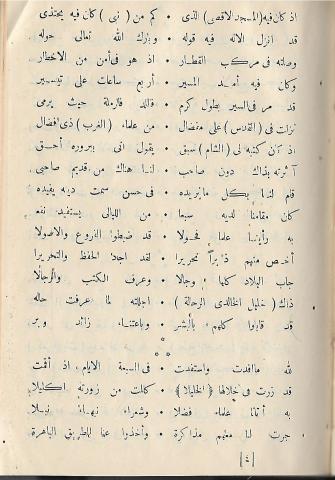 اذ كان فيه (المسجد الاقصى) الذي • كم من (نبي) كان فيه يحتذى
قد انزل الاله فيه قوله • وبارك الله تعالى حوله
وصلته في مركب القطار • اذ هو في أمن من الاخطار
وكان فيه أمد المسير • أربع ساعات على تيسير
قد مر في السير بطول كرم • فاللد فالرملة حيث يرمى
نزلت في (القدس) على مفضال • من علماء (الغرب) ذي افضال
اذ كان كتبه لي (الشام) سبق • يقول انى بروره أحق
آثرته بذاك دون صاحب • لنا هناك من قديم صاحبي
قام لنا بكل ما نريده • في حسن سمت دينه يفيده
كان مقامنا لديه سبعا • من الليالي يستفيد نفعا
به رأينا علما فحولا • قد ضبطوا الفروع والاصولا
أخص منهم ذا نحريرا • لقد اجاد الحفظ والتحريرا
جاب البلاد كلها وجالا • وعرف الكتب والرجالا
ذاك (خليل الخالدي الرحالة) • اجلالته لما عرفت حاله
قد قابلوا كلهم بالبشر • وباعتناء زائد وبر
* *
لله ما افدت واستفدت • في السبعة الايام اذ أقمت
قد زرت في خلالها (الخليلا) • كمالت من زورته اكليلا
به أتانا علماء فضلا • وشعراء نبلا
جرت لنا معهم مذاكرة • وأخذوا عنا الطريق الباهرة
[٤]